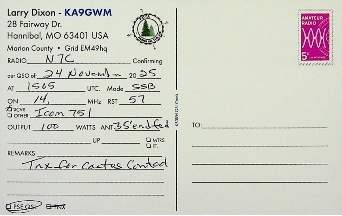 Larry Dixon - KA9GWM
28 Fairway Dr.
Hannibal, MO 63401 USA
Marion County • Grid EM49hq
RADIO N7C Confirming
our QSO of 24 November 2025
AT 1505 UTC. Mode SSB
ON 14. MHz RST 57
XCVR Icom 751
OTHER
OUTPUT 100 WATTS ANT 35' endfed
UP MTRS.
FT.
REMARKS
Tnx for Cactus Contact
PSE QSL TNX
AMATEUR
RADIO
5¢
TO: